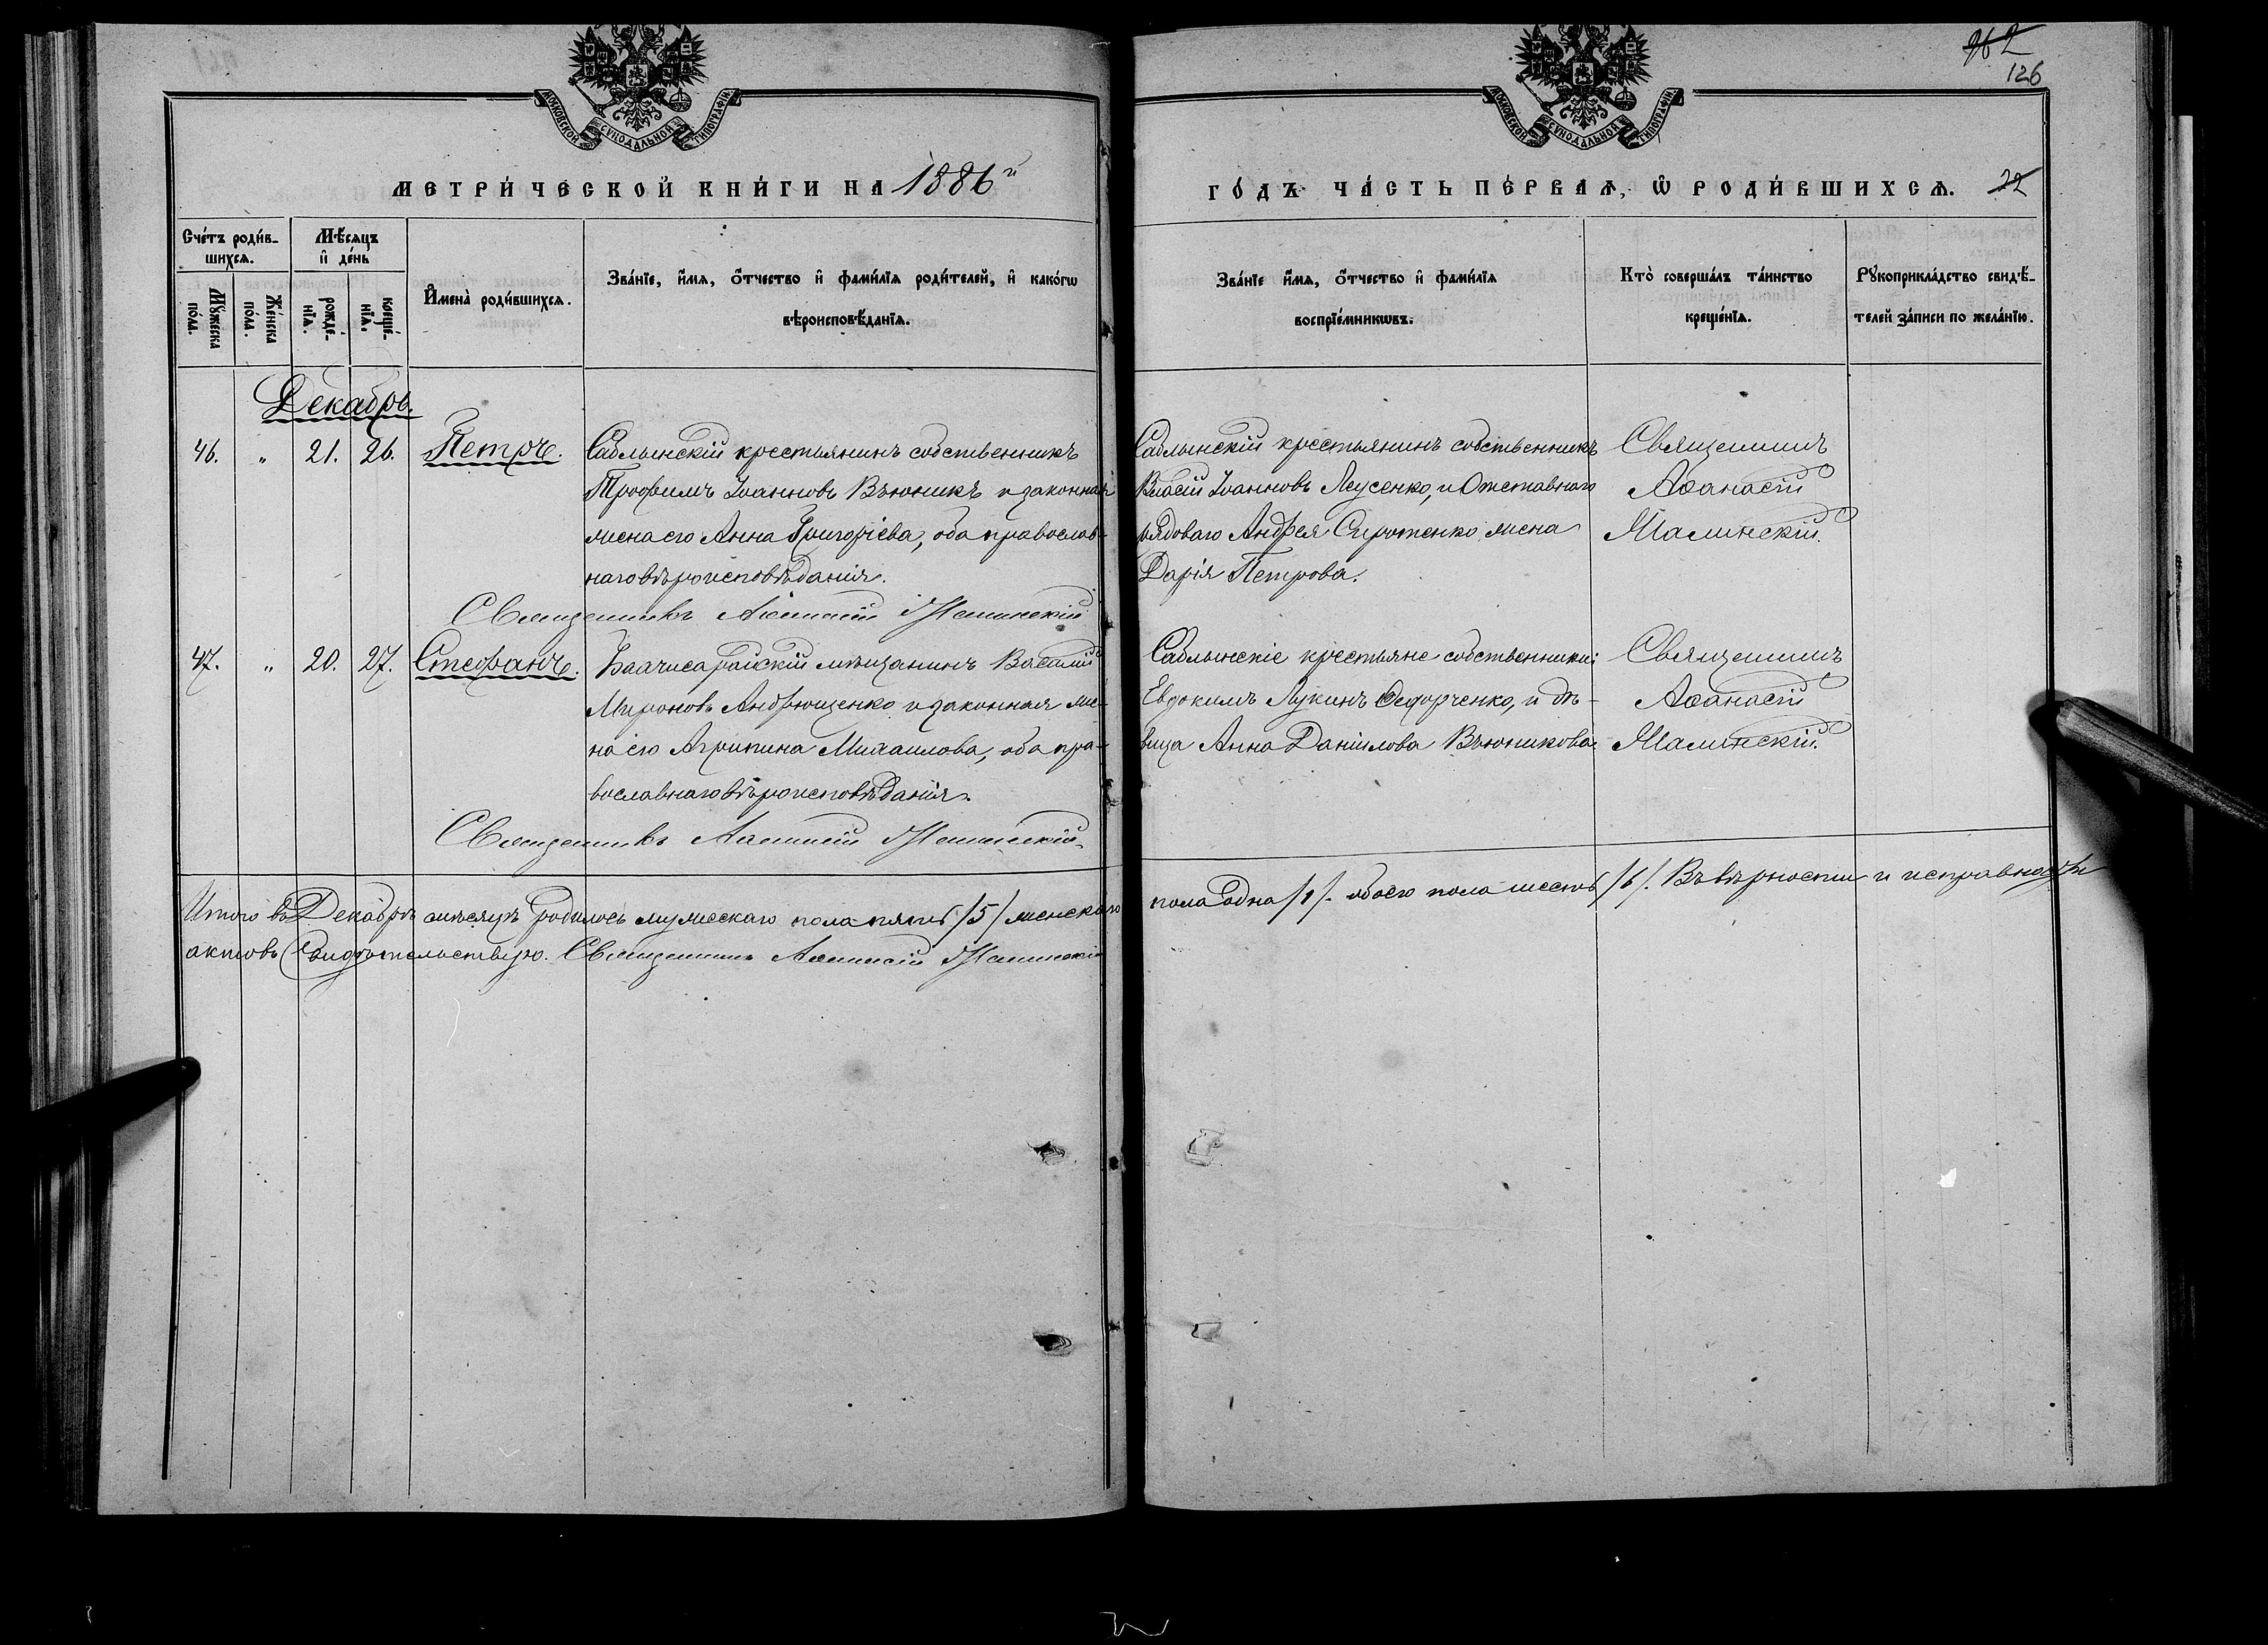 МОСКОВСКОЙ СѴНОДАЛЬНОЙ ТИПОГРАФІИ.
МОСКОВСКОЙ СѴНОДАЛЬНОЙ ТИПОГРАФІИ.
962
126
МЕТРИ́ЧЕСКОЙ КНИ́ГИ НА 1886й
ГО́ДЪ ЧА́СТЬ ПЕ́РВАѦ, Ѡ РОДИ́ВШИХСѦ. 22
Сче́тъ роди́в-
шихсѧ.
Мѣ́сѧцъ
и҆ де́нь
Мꙋ́жеска
по́ла.
Же́нска
по́ла.
рожде́-
нїѧ.
креще́-
нїѧ.
И҆мена̀ роди́вшихсѧ.
Зва́нїе, и҆́мѧ, ѻ҆́тчество и҆ фами́лїѧ роди́телей, и҆ како́гѡ
вѣроисповѣ́данїѧ.
Зва́нїе и҆́мѧ, ѻ҆́тчество и҆ фами́лїѧ
воспрїе́мникѡвъ.
Кто̀ соверша́лъ та́инство
креще́нїѧ.
Рꙋкоприкла́дство свидѣ́-
телей за́писи по жела́нїю.
Декабрь.
46. " 21. 26. Петръ. Саблынскій крестьянинъ собственникъ
Трофимъ Іоанновъ Вьюникъ и законная
жена его Анна Григоріева, оба православ-
наго вѣроисповѣданія.
Священникъ Аѳанасій Малинскій
Саблынскій крестьянинъ собственникъ
Власій Іоанновъ Леусенко, и Отставнаго
рядоваго Андрея Сиротенко жена
Дарія Петрова.
Священникъ
Аѳанасій
Малинскій.
47. " 20. 27. Стефанъ. Бахчисарайскій мѣщанинъ Василій
Мироновъ Андрющенко и законная же-
на его Агрипина Михаилова, оба пра-
вославнаго вѣроисповѣданія.
Священникъ Аѳанасій Малинскій.
Саблынскіе крестьяне собственники:
Евдокимъ Лукинъ Федорченко, и дѣ-
вица Анна Даніилова Вьюникова.
Священникъ
Аѳанасій
Малинскій.
Итого въ Декабрѣ мѣсяцѣ родилось мужескаго пола пять /5/ женскаго
пола одна /1/. обоего пола шесть /6/. Въ вѣрности и исправности
актовъ свидѣтельствую. Священникъ Аѳанасій Малинскій